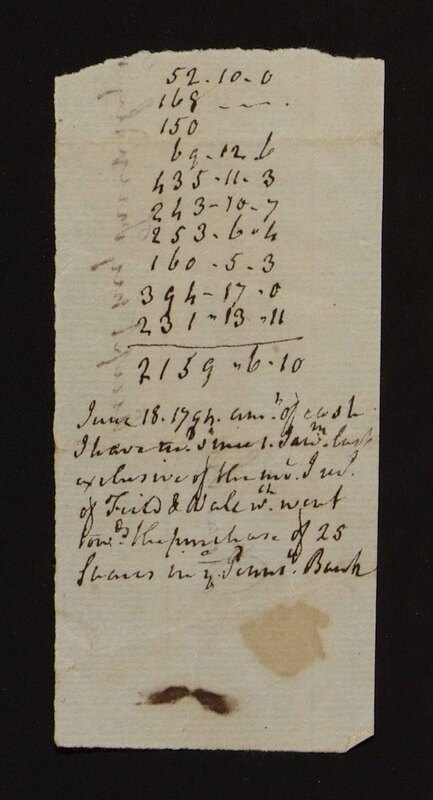 52-10-0
168 - - .
150
69-12-6
435-11-3
243-10-7
253-6-4
160-5-3
394-17-0
231-13-11
2159-6-10
June 18. 1794. amt. of cash
I have recd. since 1. Jany. last
exclusive of the mo. I recd.
of Field & Wale wch. went
towds. the purchase of 25
Shares in ye Pennsa. Bank